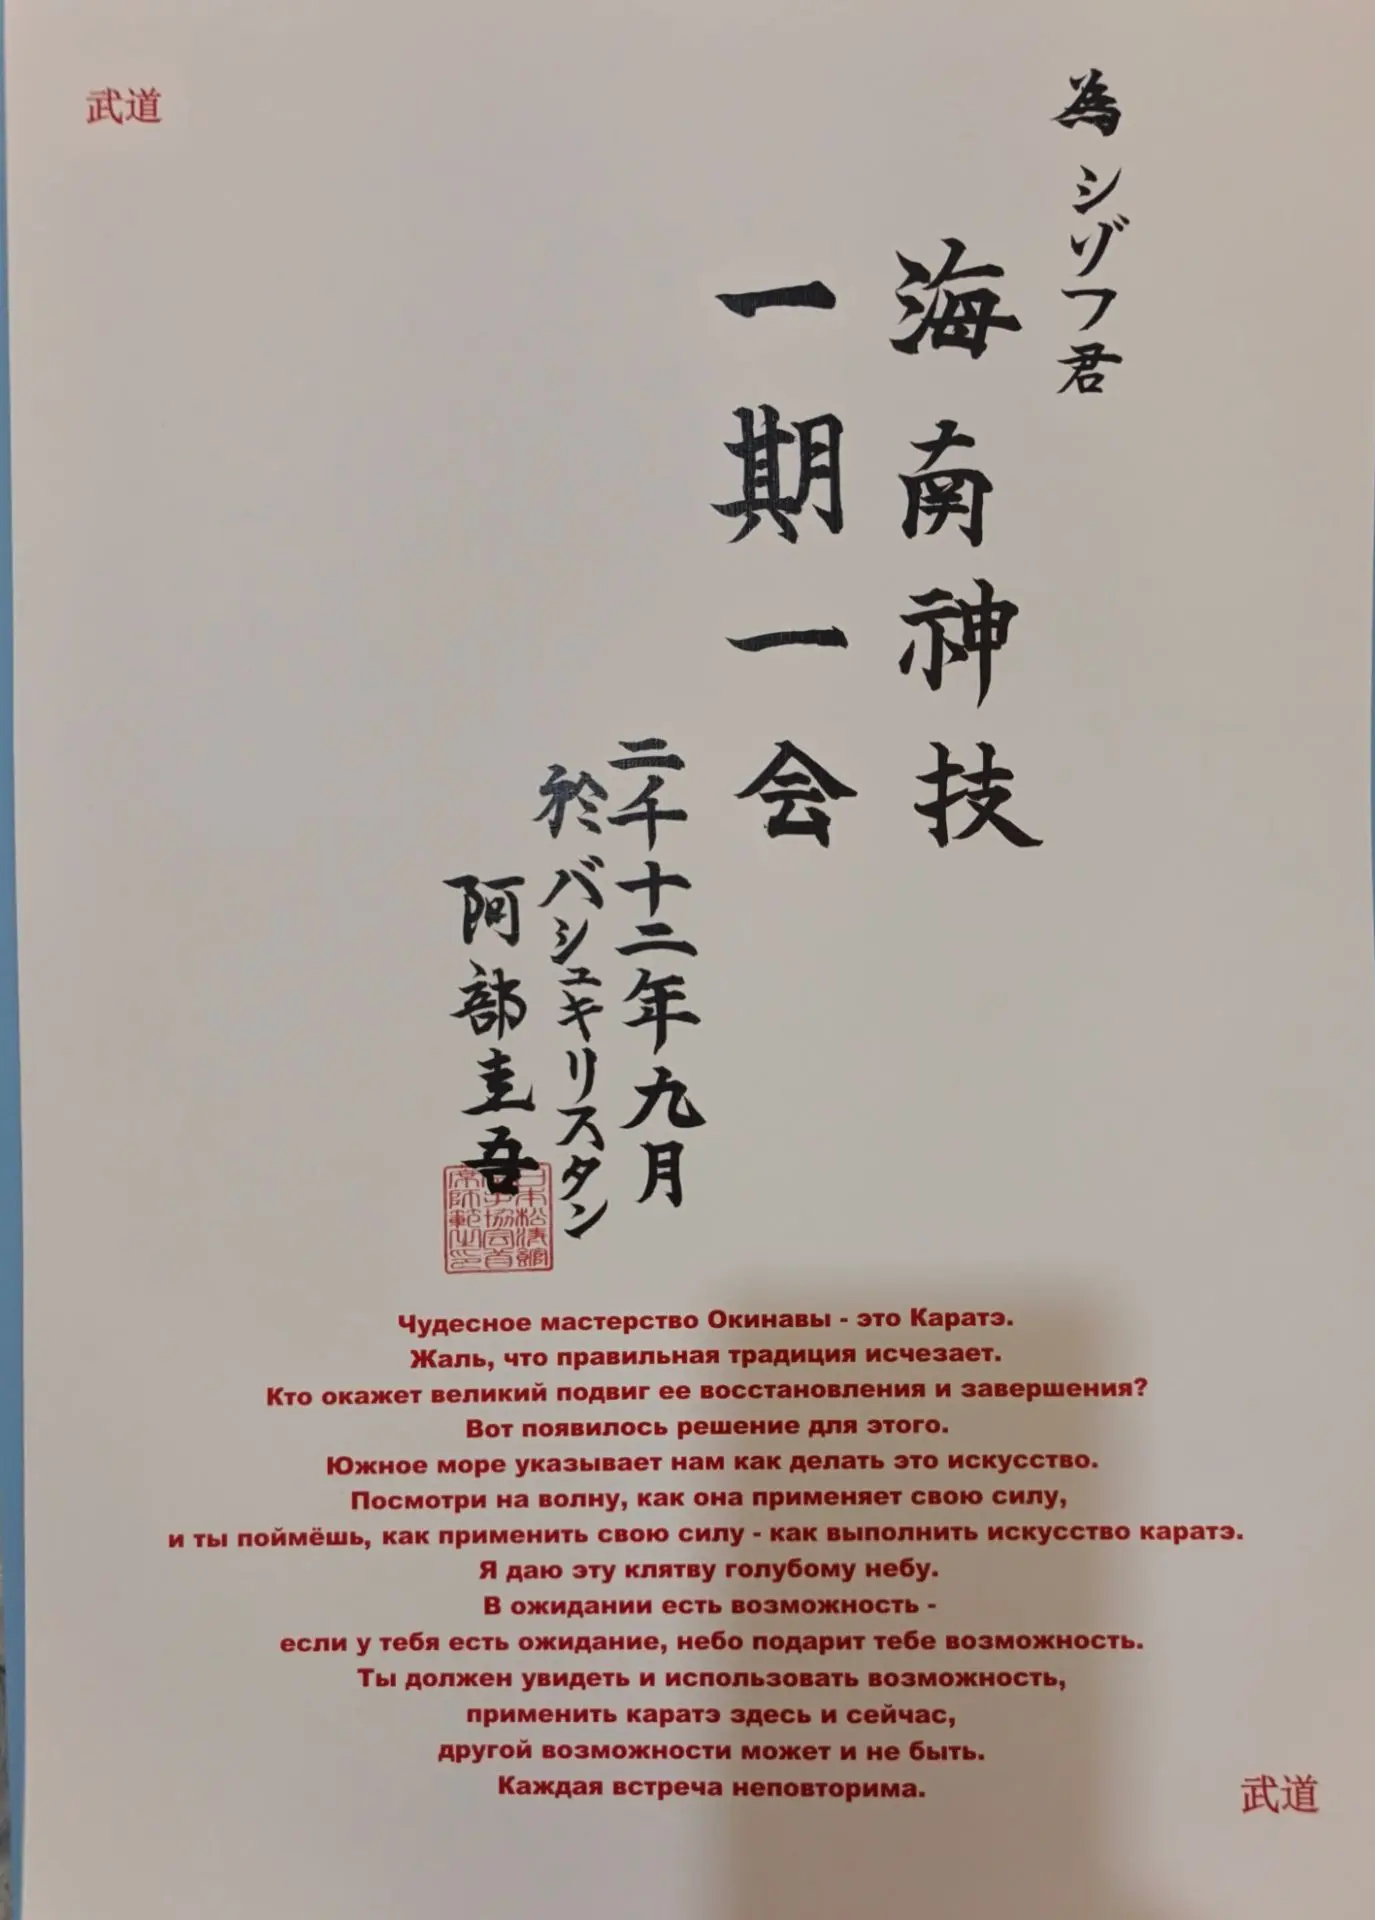 武道
為 シゾフ君
海南神技
一期一会
二千十二年九月
於バシュキリスタン
阿部圭吾
日本松涛館
空手協会首
席師範之印
Чудесное мастерство Окинавы - это Каратэ.
Жаль, что правильная традиция исчезает.
Кто окажет великий подвиг ее восстановления и завершения?
Вот появилось решение для этого.
Южное море указывает нам как делать это искусство.
Посмотри на волну, как она применяет свою силу,
и ты поймёшь, как применить свою силу - как выполнить искусство каратэ.
Я даю эту клятву голубому небу.
В ожидании есть возможность -
если у тебя есть ожидание, небо подарит тебе возможность.
Ты должен увидеть и использовать возможность,
применить каратэ здесь и сейчас,
другой возможности может и не быть.
Каждая встреча неповторима.
武道